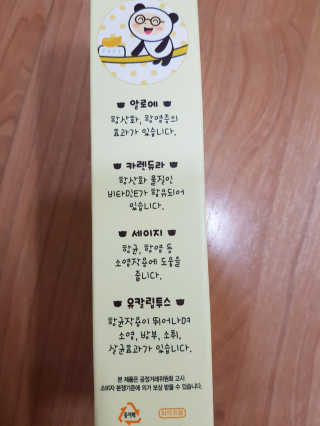 알로에
항산화, 항염증의
효과가 있습니다.
카렌듀라
항산화 물질인
비타민E가 함유되어
있습니다.
세이지
항균, 항염 등
소염작용에 도움을
줍니다.
유칼립투스
항균작용이 뛰어나며
소염, 방부, 소취,
살균효과가 있습니다.
본 제품은 공정거래위원회 고시
소비자 분쟁기준에 의거 보상 받을 수 있습니다.
종이팩